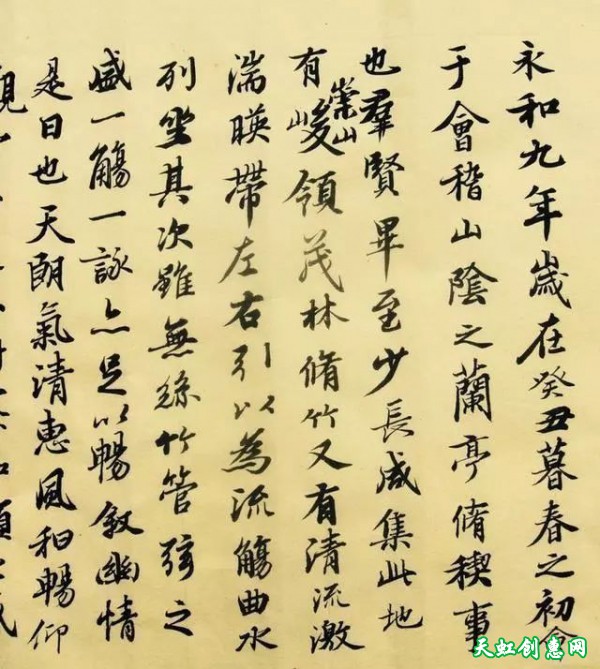 永和九年歲在癸丑暮春之初會
于會稽山陰之蘭亭脩稧事
也羣賢畢至少長咸集此地
有崇山峻領茂林脩竹又有清流激
湍暎帶左右引以為流觴曲水
列坐其次雖無絲竹管弦之
盛一觴一詠亦足以暢敘幽情
是日也天朗氣清惠風和暢仰
天虹创惠网